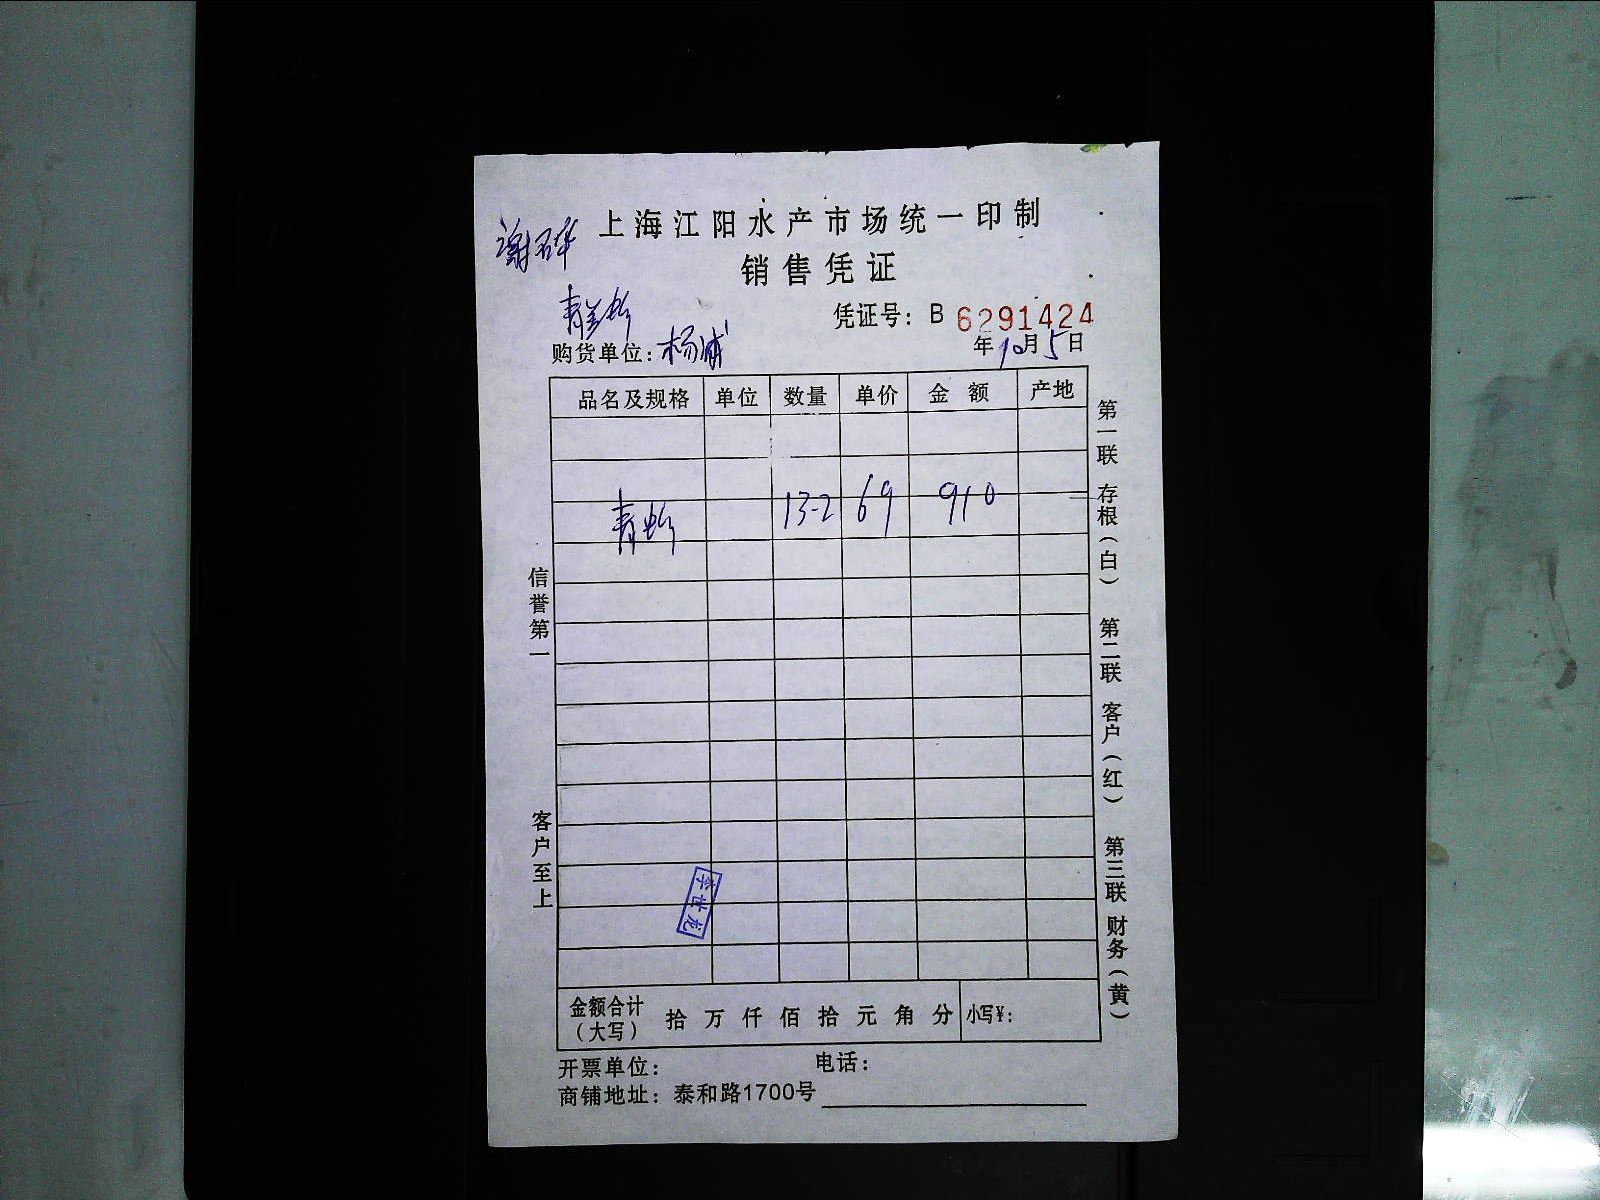 上海江阳水产市场统一印制
销售凭证
凭证号：B 6291424
购货单位：杨浦
年10月5日
品名及规格 单位 数量 单价 金额 产地
青 13-2 69 910
信誉第一
客户至上
第一联 存根（白） 第二联 客户（红） 第三联 财务（黄）
李世龙
金额合计（大写） 拾 万 仟 佰 拾 元 角 分 小写¥：
开票单位： 电话：
商铺地址：泰和路1700号